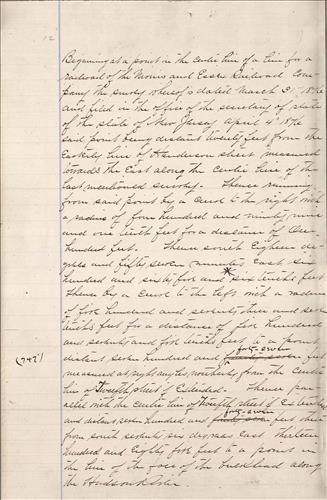 12
Beginning at a point in the centre line of a line for a
railroad of the Morris and Essex Railroad Com-
pany the survey whereof is dated March 31st 1876
and filed in the office of the secretary of state
of the state of New Jersey April 4th 1876
said point being distant twenty feet from the
Easterly line of Henderson street measured
towards the East along the centre line of the
last mentioned survey. Thence running
from said point by a curve to the right with
a radius of four hundred and ninety nine
and one tenth feet for a distance of One
hundred feet. Thence south Eighteen de-
grees and fifty seven minutes East six
hundred and sixty five and * six tenths feet
Thence by a curve to the left with a radius
of five hundred and seventy three and seven
tenths feet for a distance of five hundred
and seventy and five tenths feet to a point
distant seven hundred and forty-seven feet
(747')
measured at right angles northerly from the centre
line of Twelfth street Extended. Thence par-
allel with the centre line of Twelfth street Extended
and distant seven hundred and forty-seven feet there
from south seventy six degrees East Thirteen
hundred and Eighty five feet to a point in
the line of the face of the bulkhead along
the Hudson River